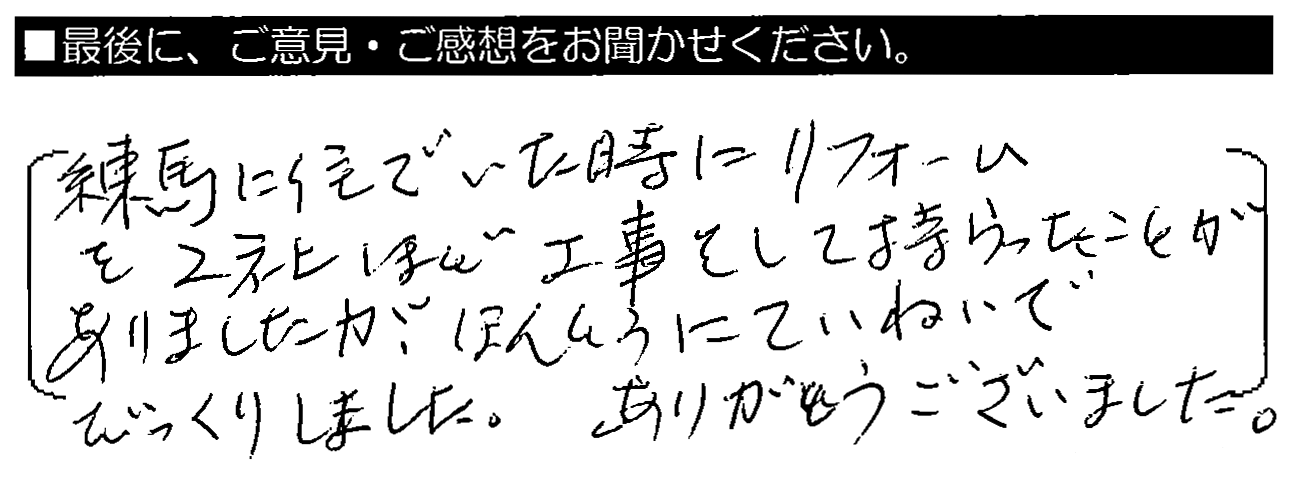 ■最後に、ご意見・ご感想をお聞かせください。
練馬に住でいた時にリフォーム
を2社ほど工事をして持らったことが
ありましたが、ほんとうにていねいで
びっくりしました。 ありがとうございました。